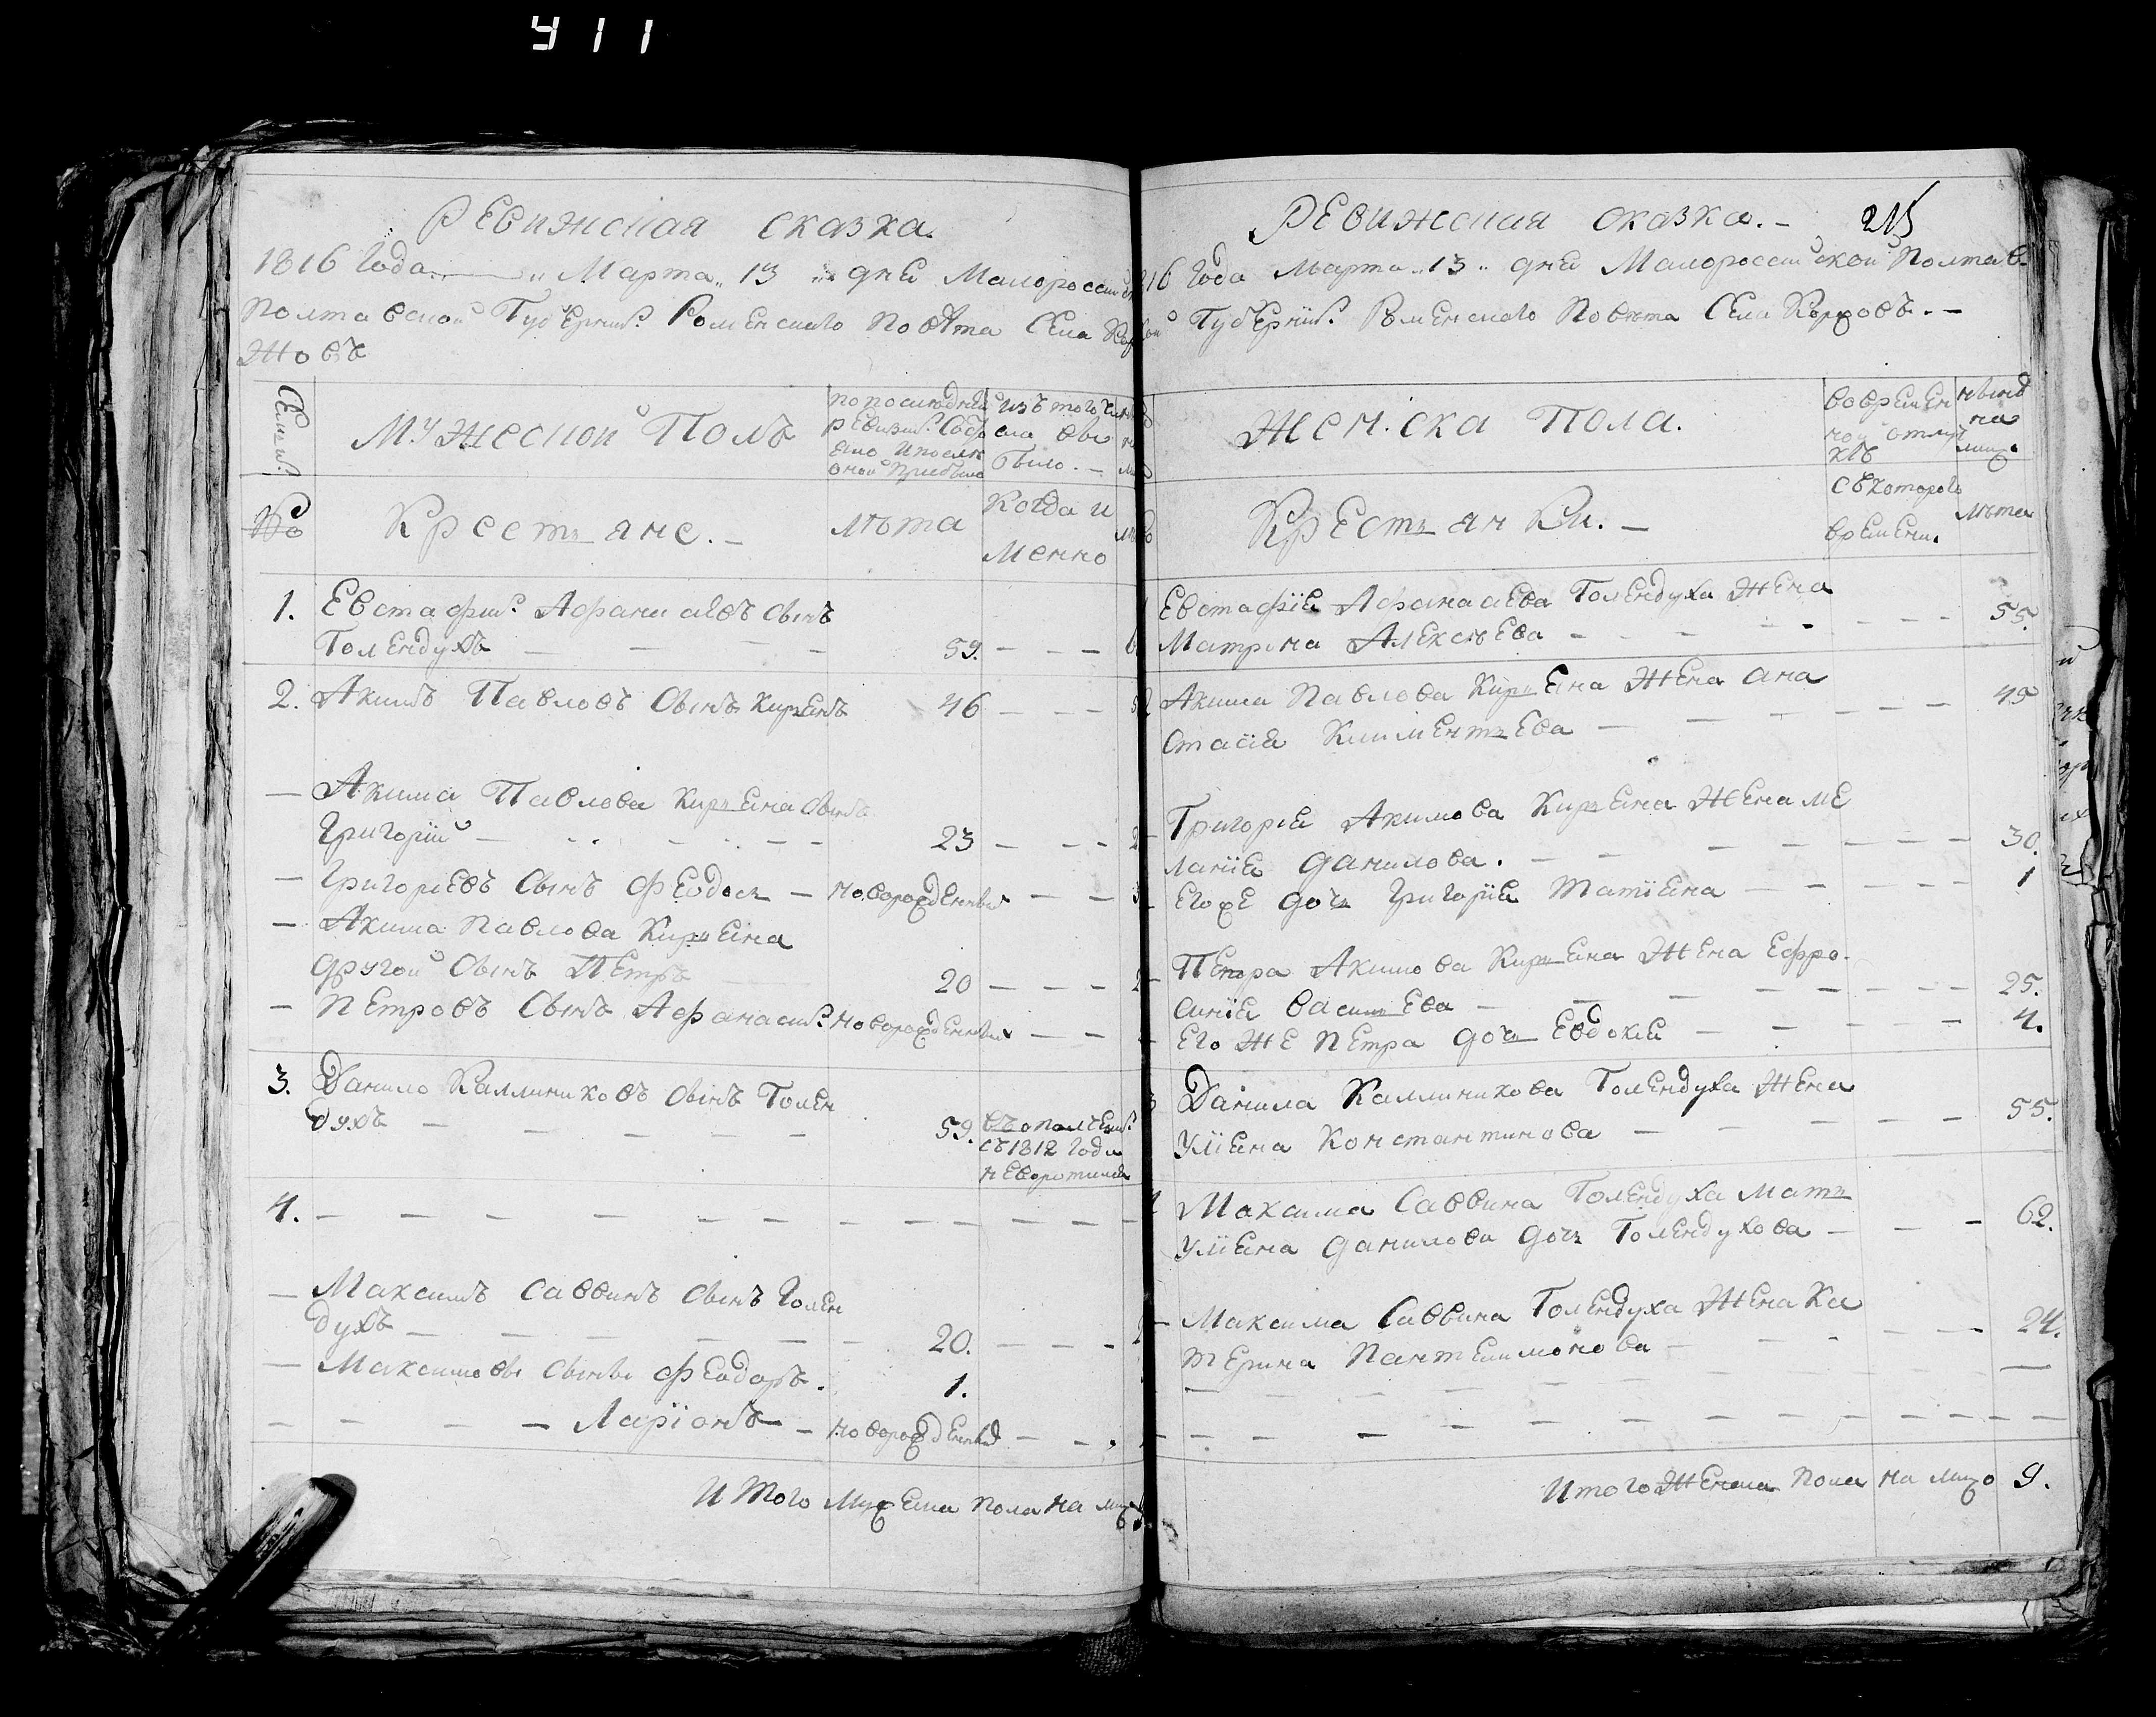 411
Ревижская сказка.
1816 Года „Марта„ 13 „ дня Малоросси
Полтавской Губерніи. Роменскаго Повѣта Села
жовъ
Семьи.
Мужеской Полъ
по послѣдней
ревизіи. Состо
яло и послѣ
оной прибыло
изъ того чи
сла вы
было. —
№
Крестьяне. —
лѣта
Когда и
менно
1. Евстафии Афанасіевъ сынъ
Голендухъ — — — 59. — — —
2. Акимъ Павловъ Сынъ Кирѣенъ 46 — — —
— Акима Павлова Кирьена Сынъ
Григорій — 23 — — —
— Григорьевъ Сынъ Феодосъ — новорожденный — —
— Акима Павлова Кирьена
другой Сынъ Петръ 20 — — —
— Петровъ Сынъ Афанасий новорожденный — —
3. Данило Каллиниковъ сынъ Голен
духъ — — — — — 59. въ ополчении
съ 1812 Года
неворотился
4. — — — — — — — — — —
— Максимъ Саввинъ сынъ Голен
духъ — — — — — 20. — — —
— Максимовы сыны Феодоръ. 1.
— — — — Ларіонъ — новорожденный — —
Итого Мужеска пола на лицо
Ревижская сказка. — 215
Года Марта „13„ дня Малороссійской Полтав
Губерніи. Роменскаго Повѣта Села Коржовъ. —
Женска Пола.
во времен
ной отлуч
кѣ
нынѣ
на
лицо
Крестьянки. —
съ котораго
времени.
лѣта
Евстафіе Афанасіева Голендуха Жена
Матрона Алексѣева — — — — — — 55.
Акима Павлова Кирьена Жена Ана
стасіа Климентьева — — — — — 45
Григоріе Акимова Кирьена Жена Ме
ланіе Данилова. — — — — — 30.
Егоже дочь Григоріе Татіена — — — — 1
Петра Акимова Кирьена Жена Ефро-
синіе Васильева — — — — — 25.
Его же Петра дочь Евдокіе — — — — 4.
Данила Каллиникова Голендуха Жена
Уліена Константинова — — — — — 55.
Максима Саввина Голендуха Мать
Уліена Данилова дочь Голендухова — — — 62.
Максима Саввина Голендуха Жена Ка
терина Пантелимонова — — — — — 24.
— — — — — — — — —
— — — — — — — — —
Итого Женска пола на лицо 9.